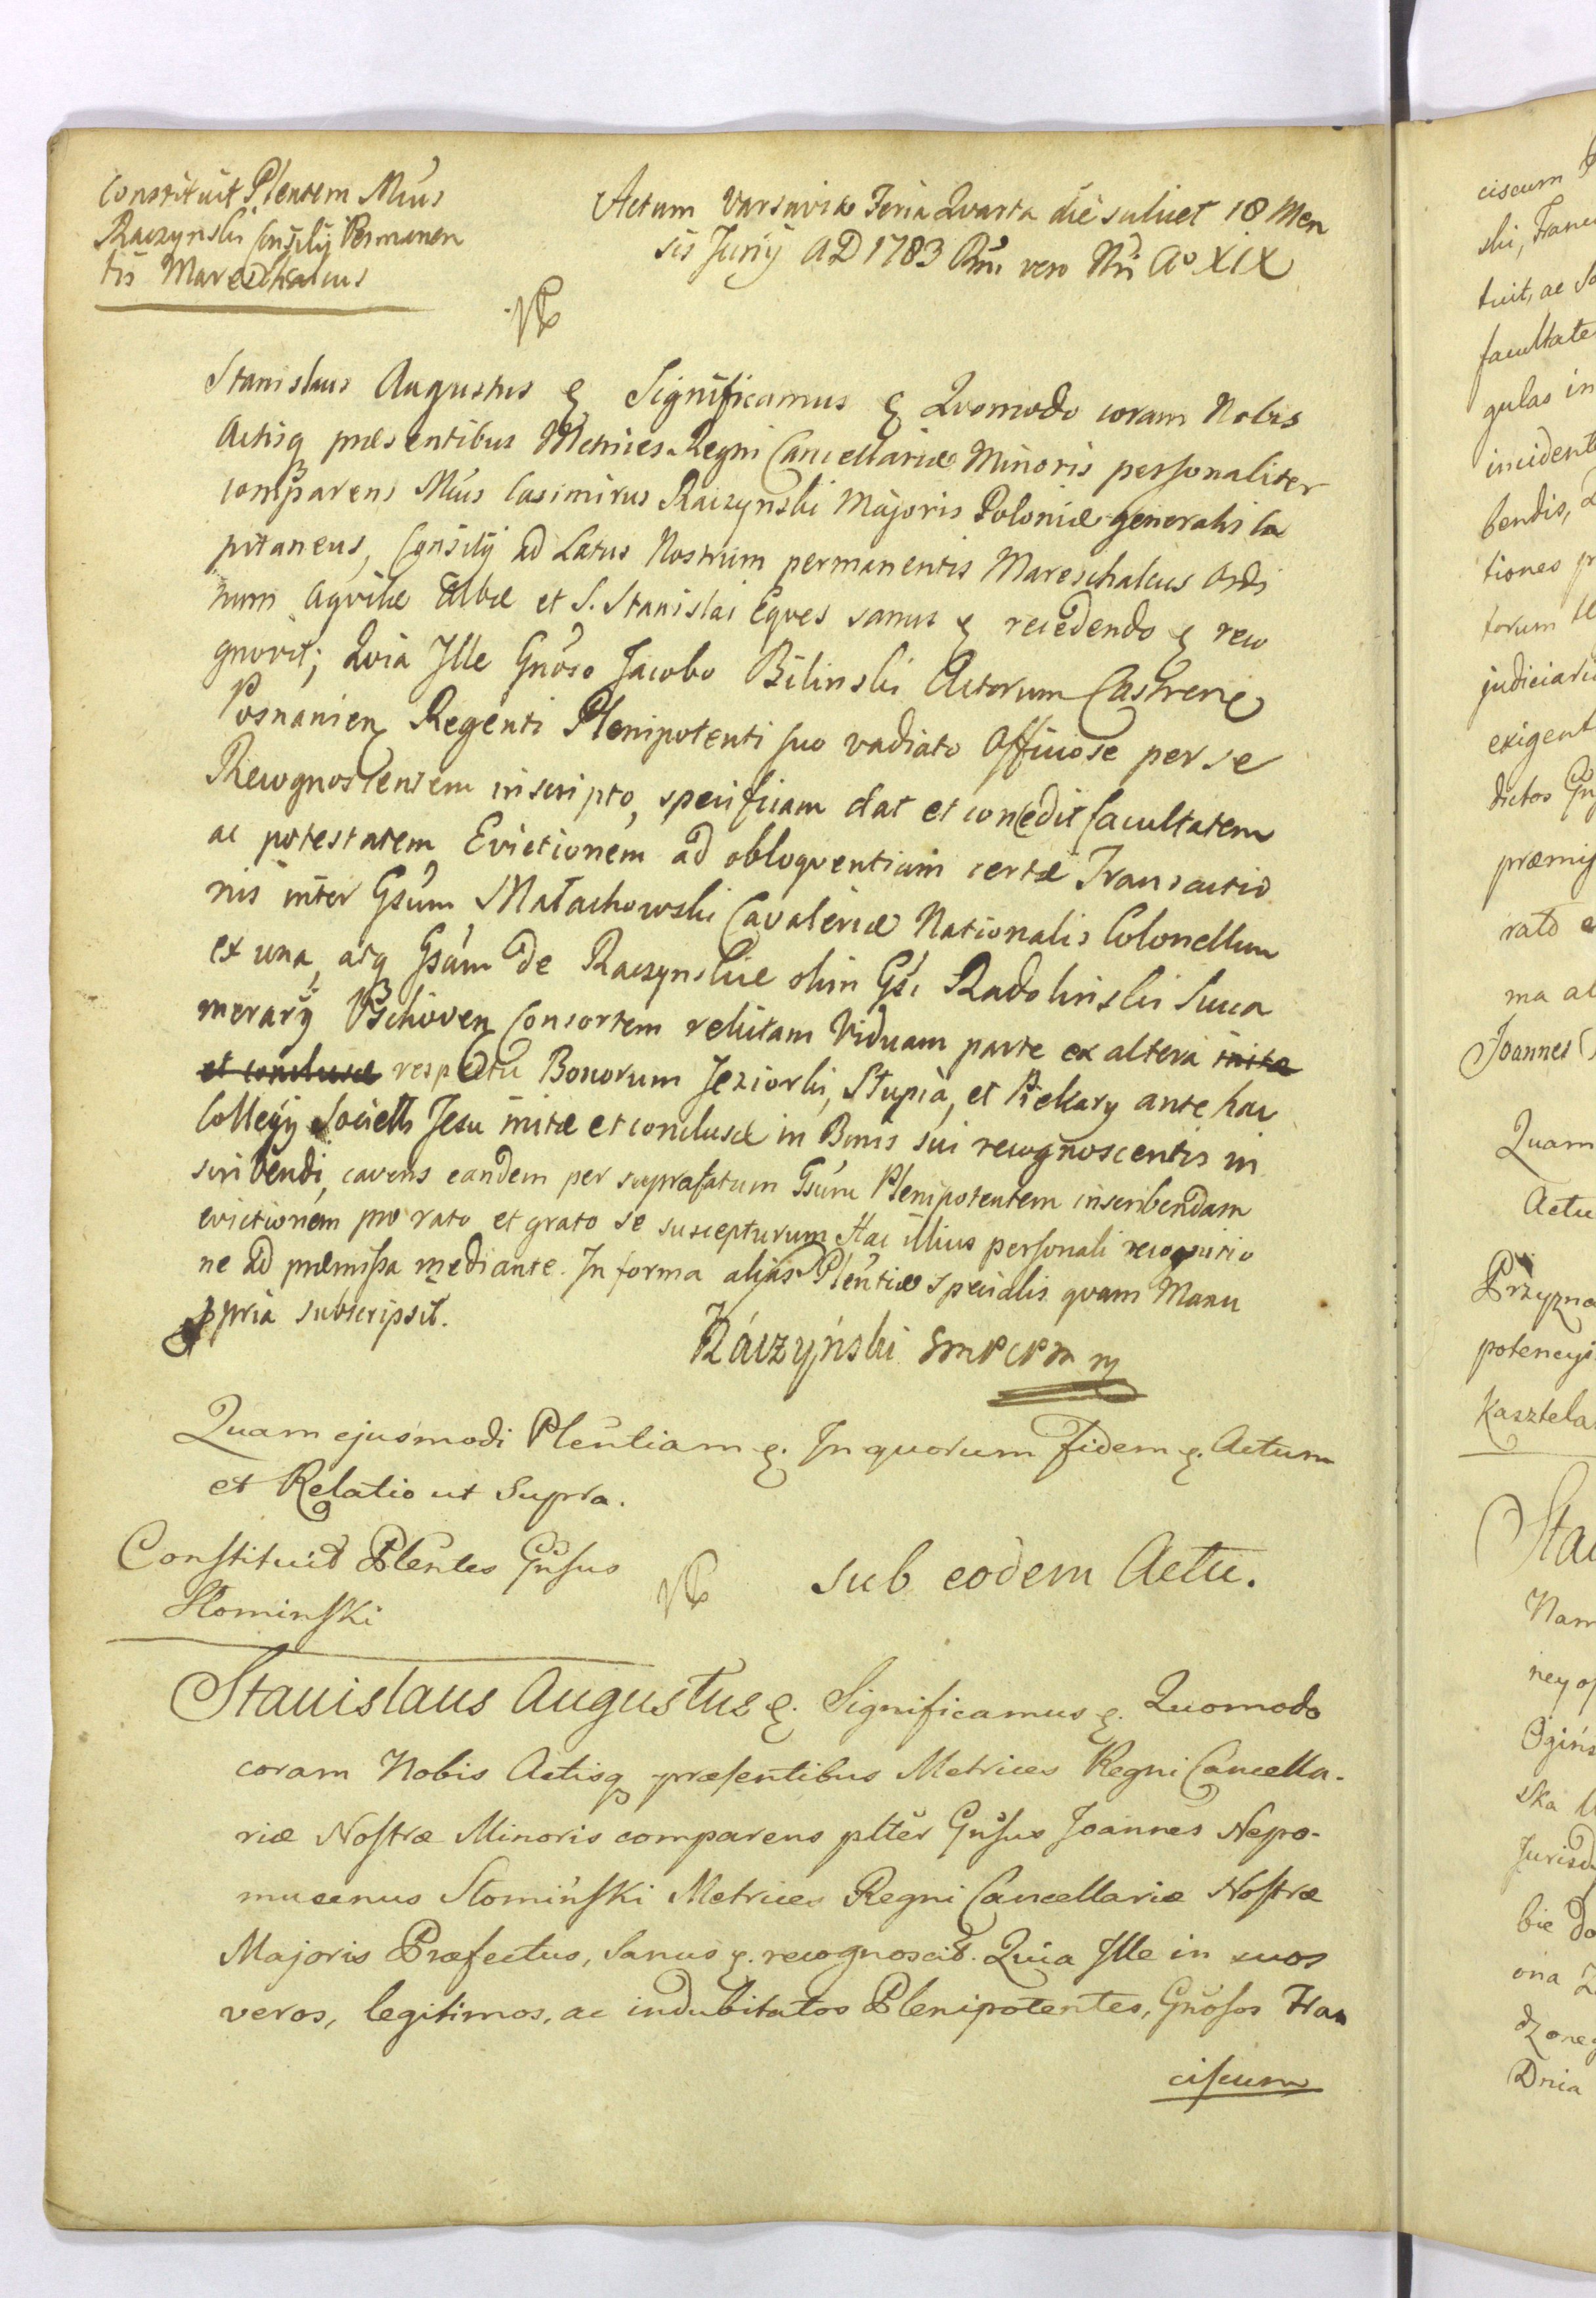 Constituit Plentem Mius
Raczynski Consilij Permanen
tis Mareschalcus
Actum Varsaviæ Feria Qvarta die scilicet 18 Men
sis Junij AD 1783 Rni vero Nri A° XIX
Stanislaus Augustus & Significamus & Qvomodo coram Nobis
Actisq præsentibus Metrices Regni Cancellariæ Minoris personaliter
comparens Mius Casimirus Raczynski Majoris Poloniæ generalis Ca
pitaneus, Consilij ad Latus Nostrum permanentis Mareschalcus Ordi
num Aqvilæ Albæ et S. Stanislai Eqves sanus & recedendo & reco
gnovit; Qvia Ille Gnoso Jacobo Bilinski Actorum Castren
Posnanien Regenti Plenipotenti suo vadiato Officiose per se
Recognoscentem inscripto, specificam dat et concedit facultatem
ac potestatem Evictionem ad obloqventiam certæ Transactio
nis inter Gsum Małachowski Cavaleriæ Nationalis Colonellum
ex una, atq Gsam de Raczynskie olim Gsi Radolinski Succa
merarij Vschoven Consortem relictam Viduam parte ex altera initæ
et conclusæ respectu Bonorum Jeziorki, Słupia, et Piekary ante hac
Collegij Societis Jesu initæ et conclusæ in Bonis sui recognoscentis in
scribendi, cavens eandem per suprafatum Gsum Plenipotentem inscribendam
evictionem pro rato et grato se suscepturum Hac illius personali recognitio
ne ad præmissa mediante. In forma alias Plentiæ specialis qvam Manu
ppria subscripsit.
Ráczyński SMPCPM mp
Quam ejusmodi Plentiam &. In quorum fidem &. Actum
et Relatio ut Supra.
Constituit Plentes Gnsus
Słominski
sub eodem Actu.
Stanislaus Augustus &. Significamus &. Quomodo
coram Nobis Actisq præsentibus Metrices Regni Cancella-
riæ Nostræ Minoris comparens plter Gnsus Joannes Nepo-
mucenus Słomiński Metrices Regni Cancellariæ Nostræ
Majoris Præfectus, Sanus &. recognoscit. Quia Ille in suos
veros, legitimos, ac indubitatos Plenipotentes, Gnosos Fran
ciscum
ciscum
ski, Franc
tuit, ac So
facultate
gulas in
incident
bendis,
tiones pr
torum
judiciari
exigent
dictos Gn
præmis
rato e
ma al
Joannes
Quam
Actu
Przyzna
potencyi
Kasztela
Sta
Nam
ney op
Ogińs
ska
Jurisd
bie do
ona
dzoney
Dnia